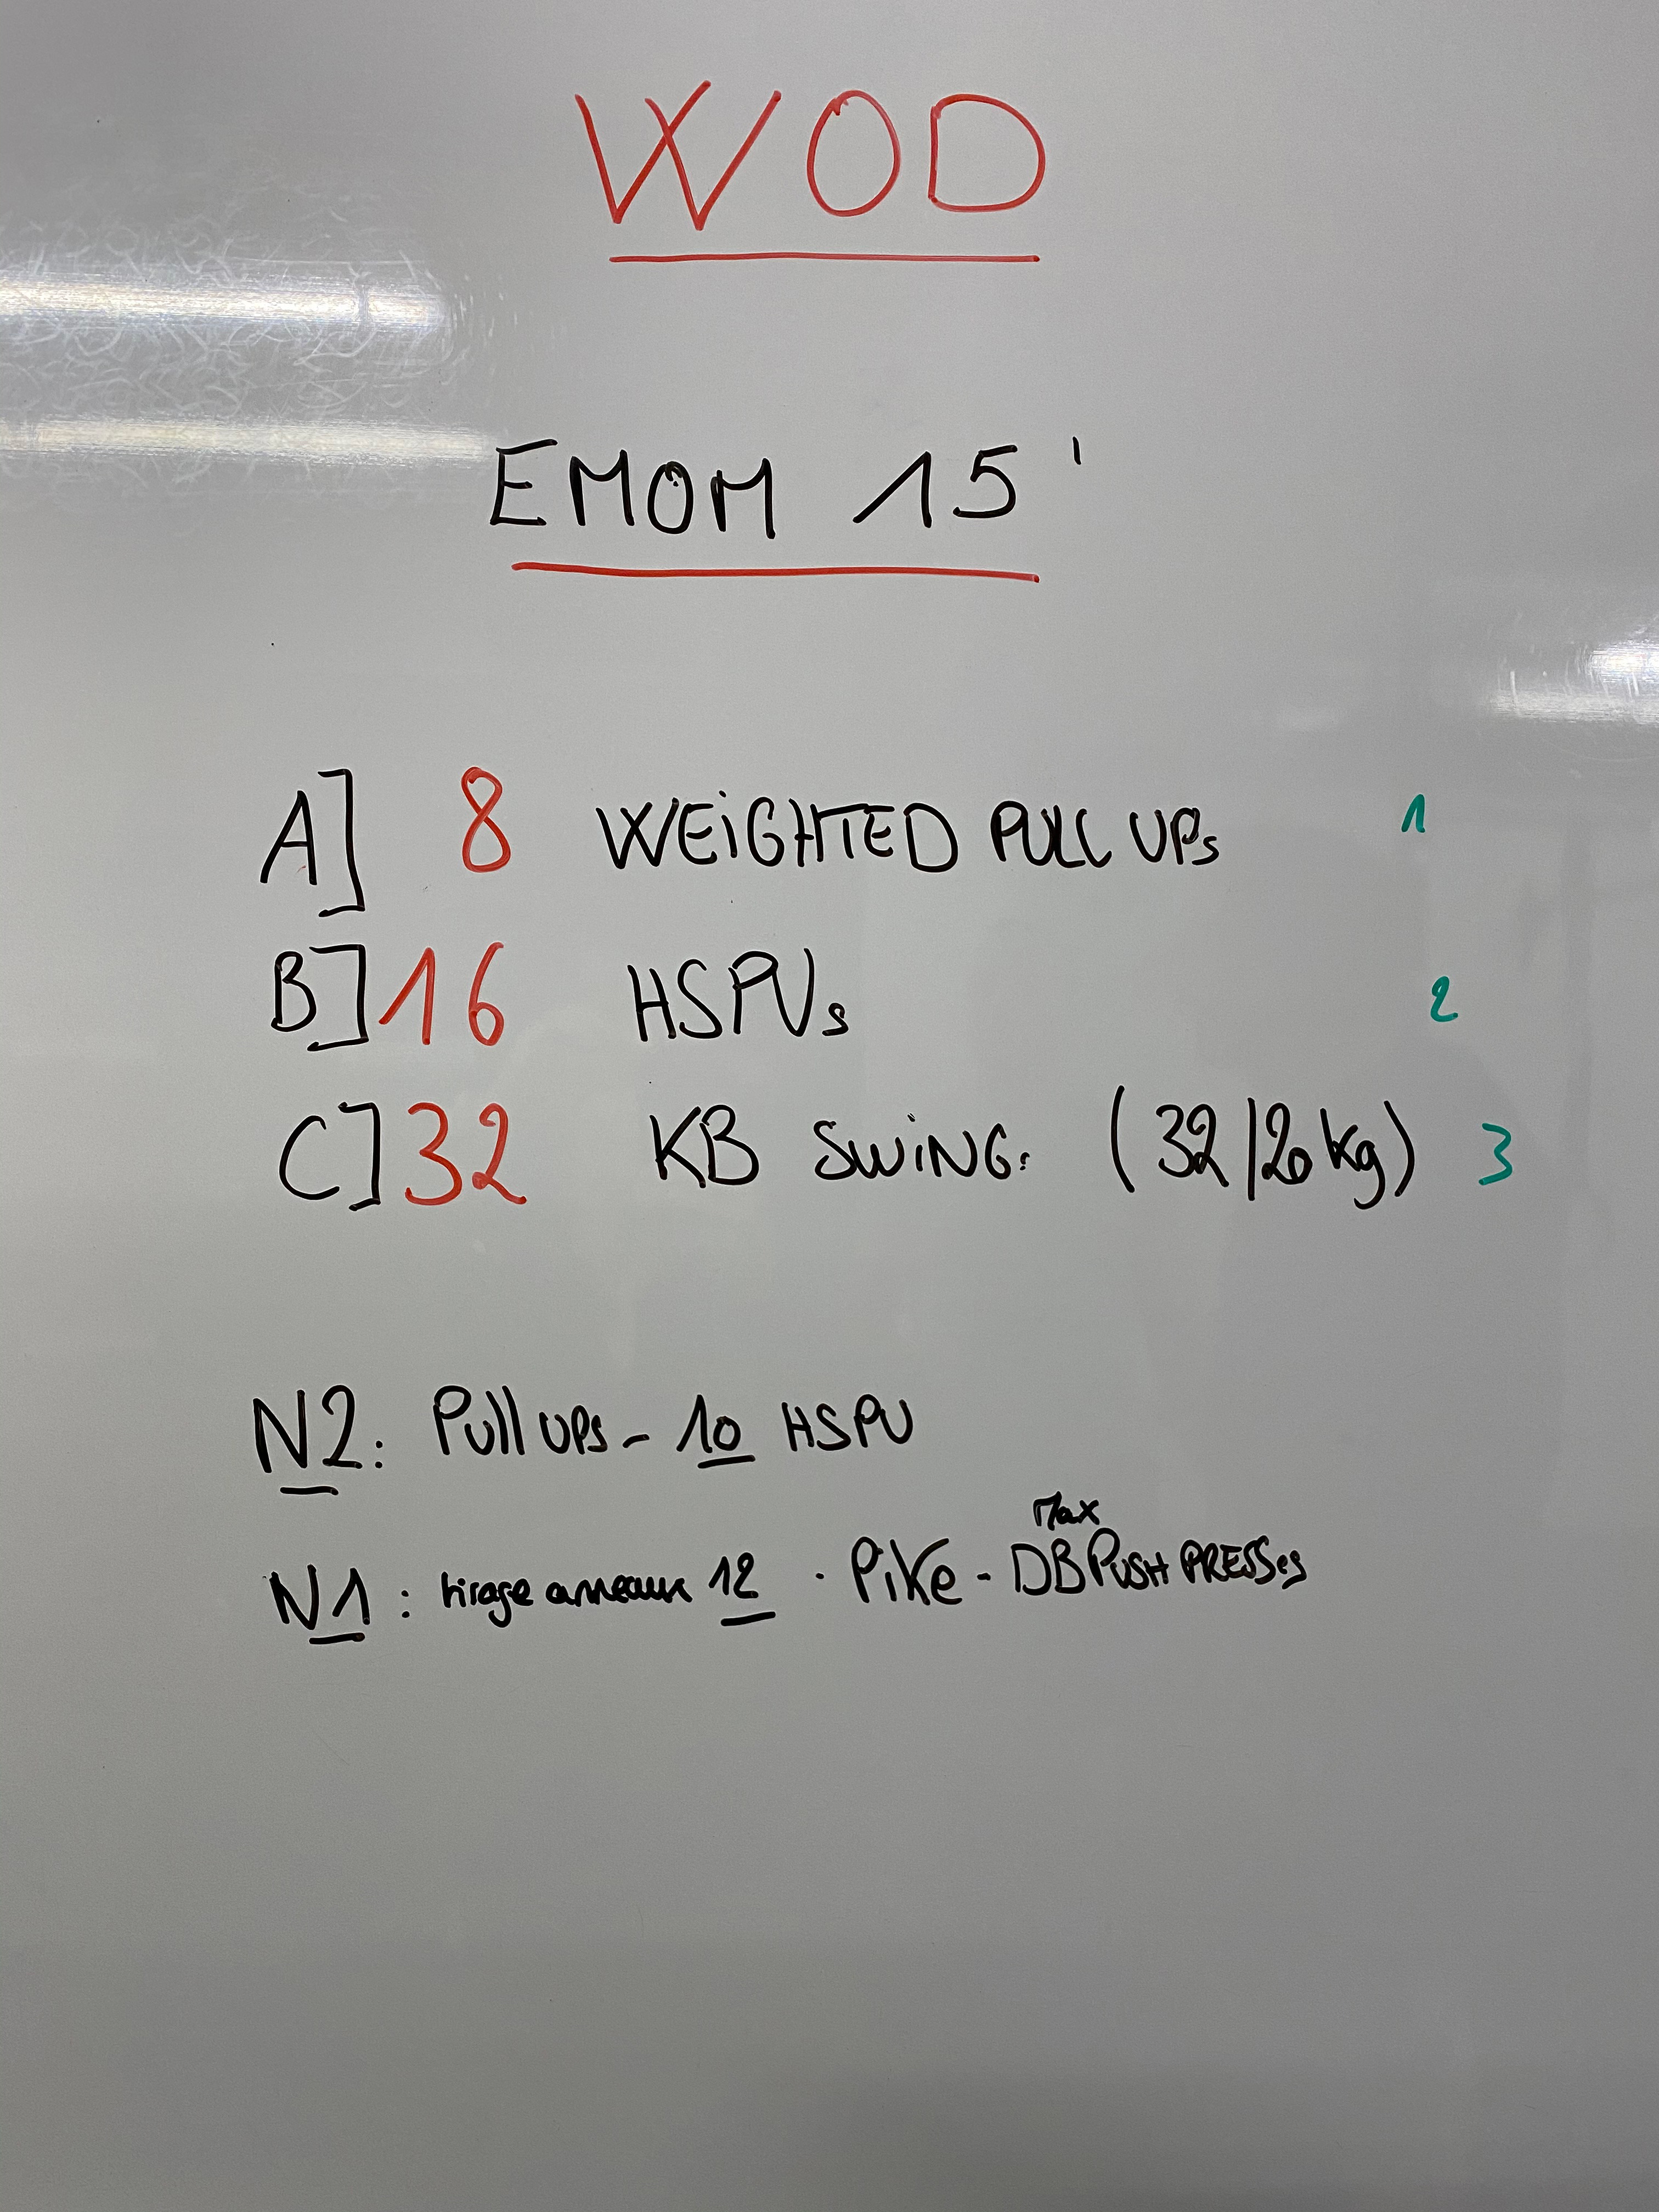 WOD
EMOM 15'
A] 8 WEiGHTED PULL UPs 1
B] 16 HSPUs 2
C] 32 KB SWiNGs (32/20 kg) 3
N2: Pull UPs - 10 HSPU
Max
N1: tirage anneaux 12 . PiKe - DB PUSH PRESSes